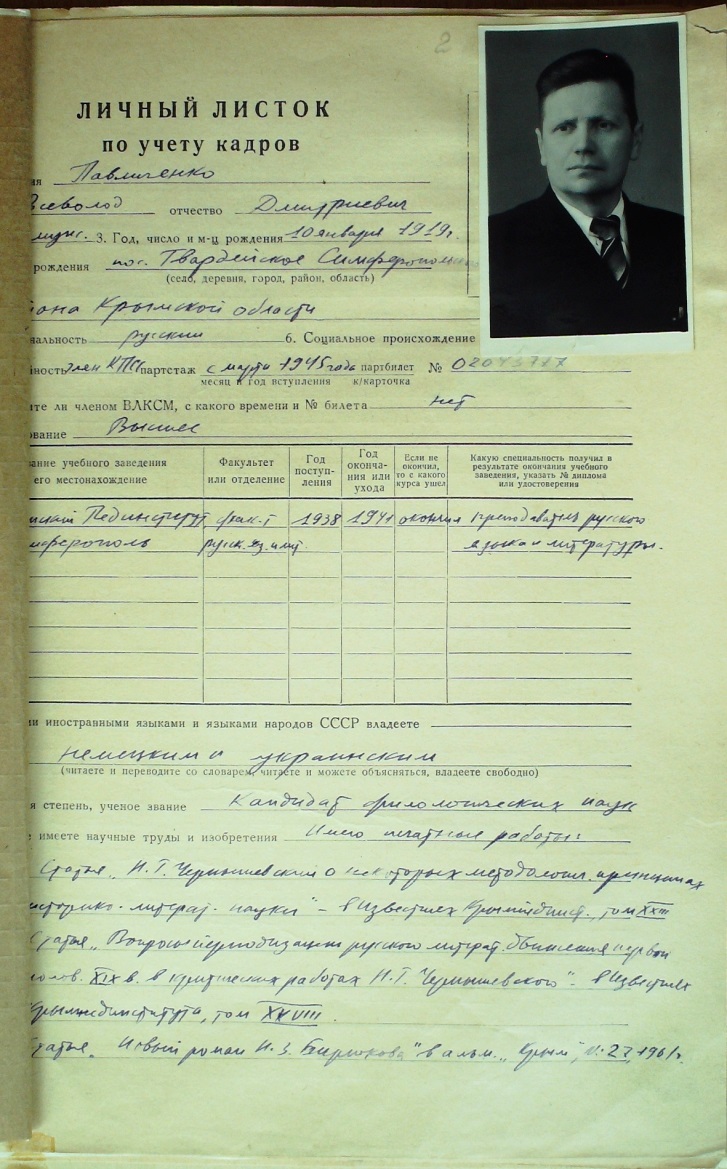 2
ЛИЧНЫЙ ЛИСТОК
по учету кадров
ия Павличенко
Всеволод отчество Дмитриевич
мужс. 3. Год, число и м-ц рождения 10 января 1919 г.
рождения пос. Гвардейское Симферопольско
(село, деревня, город, район, область)
она Крымской области
нальность русский 6. Социальное происхождение
йность член КПСС партстаж с марта 1945 года партбилет № 02045777
месяц и год вступления к/карточка
ите ли членом ВЛКСМ, с какого времени и № билета нет
ование Высшее
ание учебного заведения и его местонахождение Факультет или отделение Год поступ-ления Год оконча-ния или ухода Если не окончил, то с какого курса ушел Какую специальность получил в результате окончания учебного заведения, указать № диплома или удостоверения
мский Пединститут, фак-т 1938 1941 окончил преподаватель русского
мферополь русск. яз. и лит. языка и литературы.
ми иностранными языками и языками народов СССР владеете
немецким и украинским
(читаете и переводите со словарем, читаете и можете объясняться, владеете свободно)
я степень, ученое звание Кандидат филологических наук
имеете научные труды и изобретения Имею печатные работы:
Статья „Н.Г. Чернышевский о некоторых методологич. принципах
историко-литерат. науки" – в Известиях Крымпединст., том XXIII
Статья „Вопросы периодизации русского литерат. движения первой
полов. XIX в. в критических работах Н.Г. Чернышевского". в Известиях
Крымпединститута, том XXVIII.
Статья „Новый роман Н.З. Бирюкова" в альм. „Крым", № 27, 1961 г.